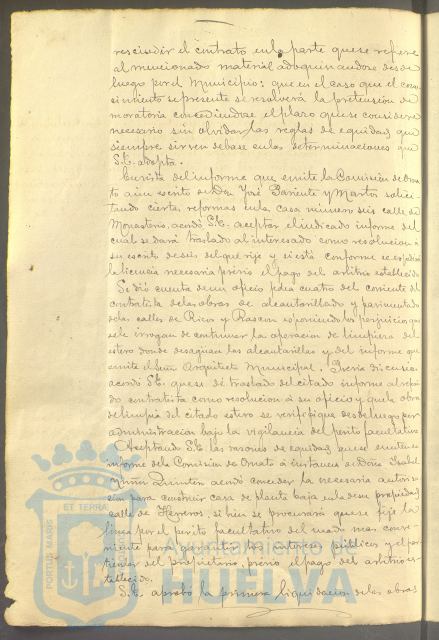 rescindir el contrato en la parte que se refiere
al mencionado material adoquinandose desde
luego por el Municipio: que en el caso que el con-
simiento se presente se resolverá la pretensión de
moratoria concediendose el plazo que se considere
necesario sin olvidar las reglas de equidad que
siempre sirven de base en las determinaciones que
S.E. adopta.
En vista del informe que emite la Comisión de Orna-
to a un escrito de Don José Pariente y Martos solici-
tando ciertas reformas en la casa número seis calle de
Monasterio, acordó S.E. aceptar el indicado informe del
cual se dará traslado al interesado como resolución a
su escrito
la licencia necesaria previo el pago del arbitrio establecido
Se dió cuenta de un oficio fecha cuatro del corriente del
contratista de las obras de alcantarillado y pavimentado
de las calles de Rico y Rascon exponiendo los perjuicios que
se le irrogan de continuar la operación de limpieza del
estero donde desaguan las alcantarillas y del informe que
emite el Señor Arquitecto Municipal. Previa discusión
acordó S.E. que se dé traslado del citado informe al referi-
do contratista como resolución a su oficio y que la obra
de limpia del citado estero se verifique desde luego por
administración bajo la vigilancia del perito facultativo
Aceptando S.E. las razones de equidad que se emiten en
informe de la Comisión de Ornato a instancia de Doña Isabel
Quintín acordó conceder la necesaria autoriza-
ción para construir casa de planta baja en la de su propiedad
calle de Herreros, si bien se procurará que se fije la
linea por el perito facultativo del modo mas conve-
niente para garantizar los intereses públicos y el por-
venir del propietario, previo el pago del arbitrio es-
tablecido.
S.E. aprobó la primera liquidación de las obras
PORTUS MARIS ET TERRAE
Ayuntamiento de
HUELVA